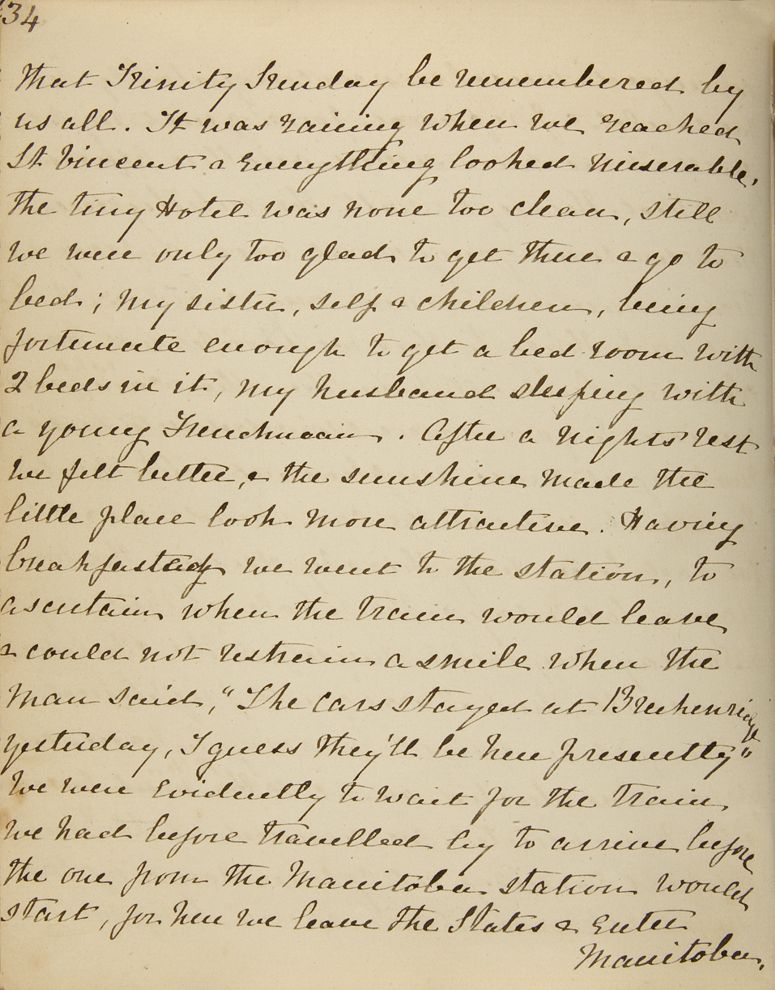 34
that Trinity Sunday be remembered by
us all. It was raining when we reached
St. Vincent & Everything looked miserable.
The tiny Hotel was none too clean, still
we were only too glad to get there & go to
bed; my sister, self & children, being
fortunate enough to get a bed room with
2 beds in it, my husband sleeping with
a young Frenchman. After a nights rest
we felt better, & the sunshine made the
little place look more attractive. Having
breakfasted we went to the station, to
ascertain when the train would leave
& could not restrain a smile when the
man said, "The cars stayed at Breckenridge
yesterday, I guess they'll be here presently"
We were Evidently to wait for the train
we had before travelled by to arrive before
the one from the Manitoba station would
start, for here we leave the States & Enter
Manitoba.